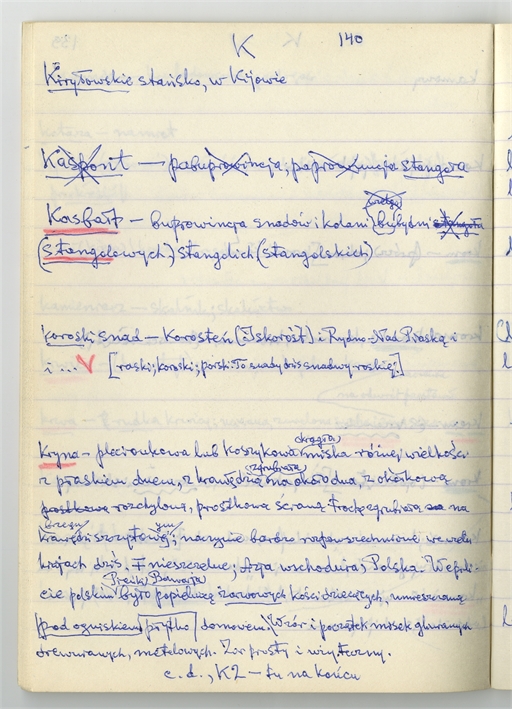 K 140
Kiryłowskie stańsko, w Kijowie
Kasport — pabuprowincja, paprowincja Stangora
Kasfart — buprowincja snadów i kolani bybydni
(Stangolowych) Stangolich (Stangolskich)
koroski snad — Korosteń (Iskorost) i Rydno-Nad Piaską i
i ... V [raski; korski; porski. To snady dziś snadwy roskię.]
okrągła
Kryna — plecionkowa lub koszykowa miska różnej wielkości
z płaskim dnem, z krawędzią na około dna, z okółkową
rozchyloną, prostkową ścianą trochę grubszą na
brzegu
krawędzi szczytowej; naczynie bardzo rozpowszechnione we wielu
krajach dziś. Nieszczelne; Azja wschodnia, Polska. W
Pieńki Bawarja
cie polskim było popielnicą żarowych kości dziecięcych, umieszczaną
pod ogniskiem płytko domowem. Wzór i początek misek glinianych
drewnianych, metalowych. Zor prosty i użyteczny.
c.d., K2 — tu na końcu